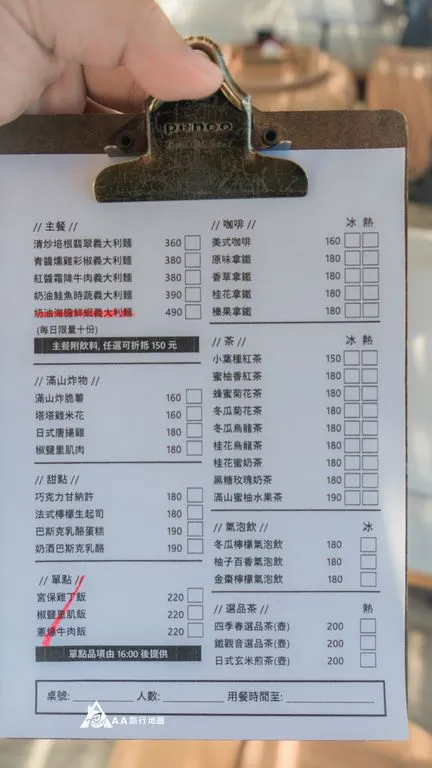 penco
// 主餐 //
清炒培根翡翠義大利麵 360
青醬燻雞彩椒義大利麵 380
紅醬霜降牛肉義大利麵 380
奶油鮭魚時蔬義大利麵 390
奶油海膽鮮蝦義大利麵 490
(每日限量十份)
主餐附飲料, 任選可折抵 150 元
// 滿山炸物 //
滿山炸脆薯 160
塔塔雞米花 160
日式唐揚雞 180
椒鹽里肌肉 180
// 甜點 //
巧克力甘納許 180
法式檸檬生起司 180
巴斯克乳酪蛋糕 190
奶酒巴斯克乳酪 190
// 單點 //
宮保雞丁飯 220
椒鹽里肌飯 220
蔥爆牛肉飯 220
單點品項由 16:00 後提供
// 咖啡 // 冰 熱
美式咖啡 160
原味拿鐵 180
香草拿鐵 180
桂花拿鐵 180
榛果拿鐵 180
// 茶 // 冰 熱
小葉種紅茶 150
蜜柚香紅茶 180
蜂蜜菊花茶 180
冬瓜菊花茶 180
冬瓜烏龍茶 180
桂花烏龍茶 180
桂花蜜奶茶 180
黑糖玫瑰奶茶 180
滿山蜜柚水果茶 190
// 氣泡飲 // 冰
冬瓜檸檬氣泡飲 180
柚子百香氣泡飲 180
金棗檸檬氣泡飲 180
// 選品茶 // 熱
四季春選品茶(壺) 200
鐵觀音選品茶(壺) 200
日式玄米煎茶(壺) 200
桌號: 人數: 用餐時間至:
AA旅行地圖